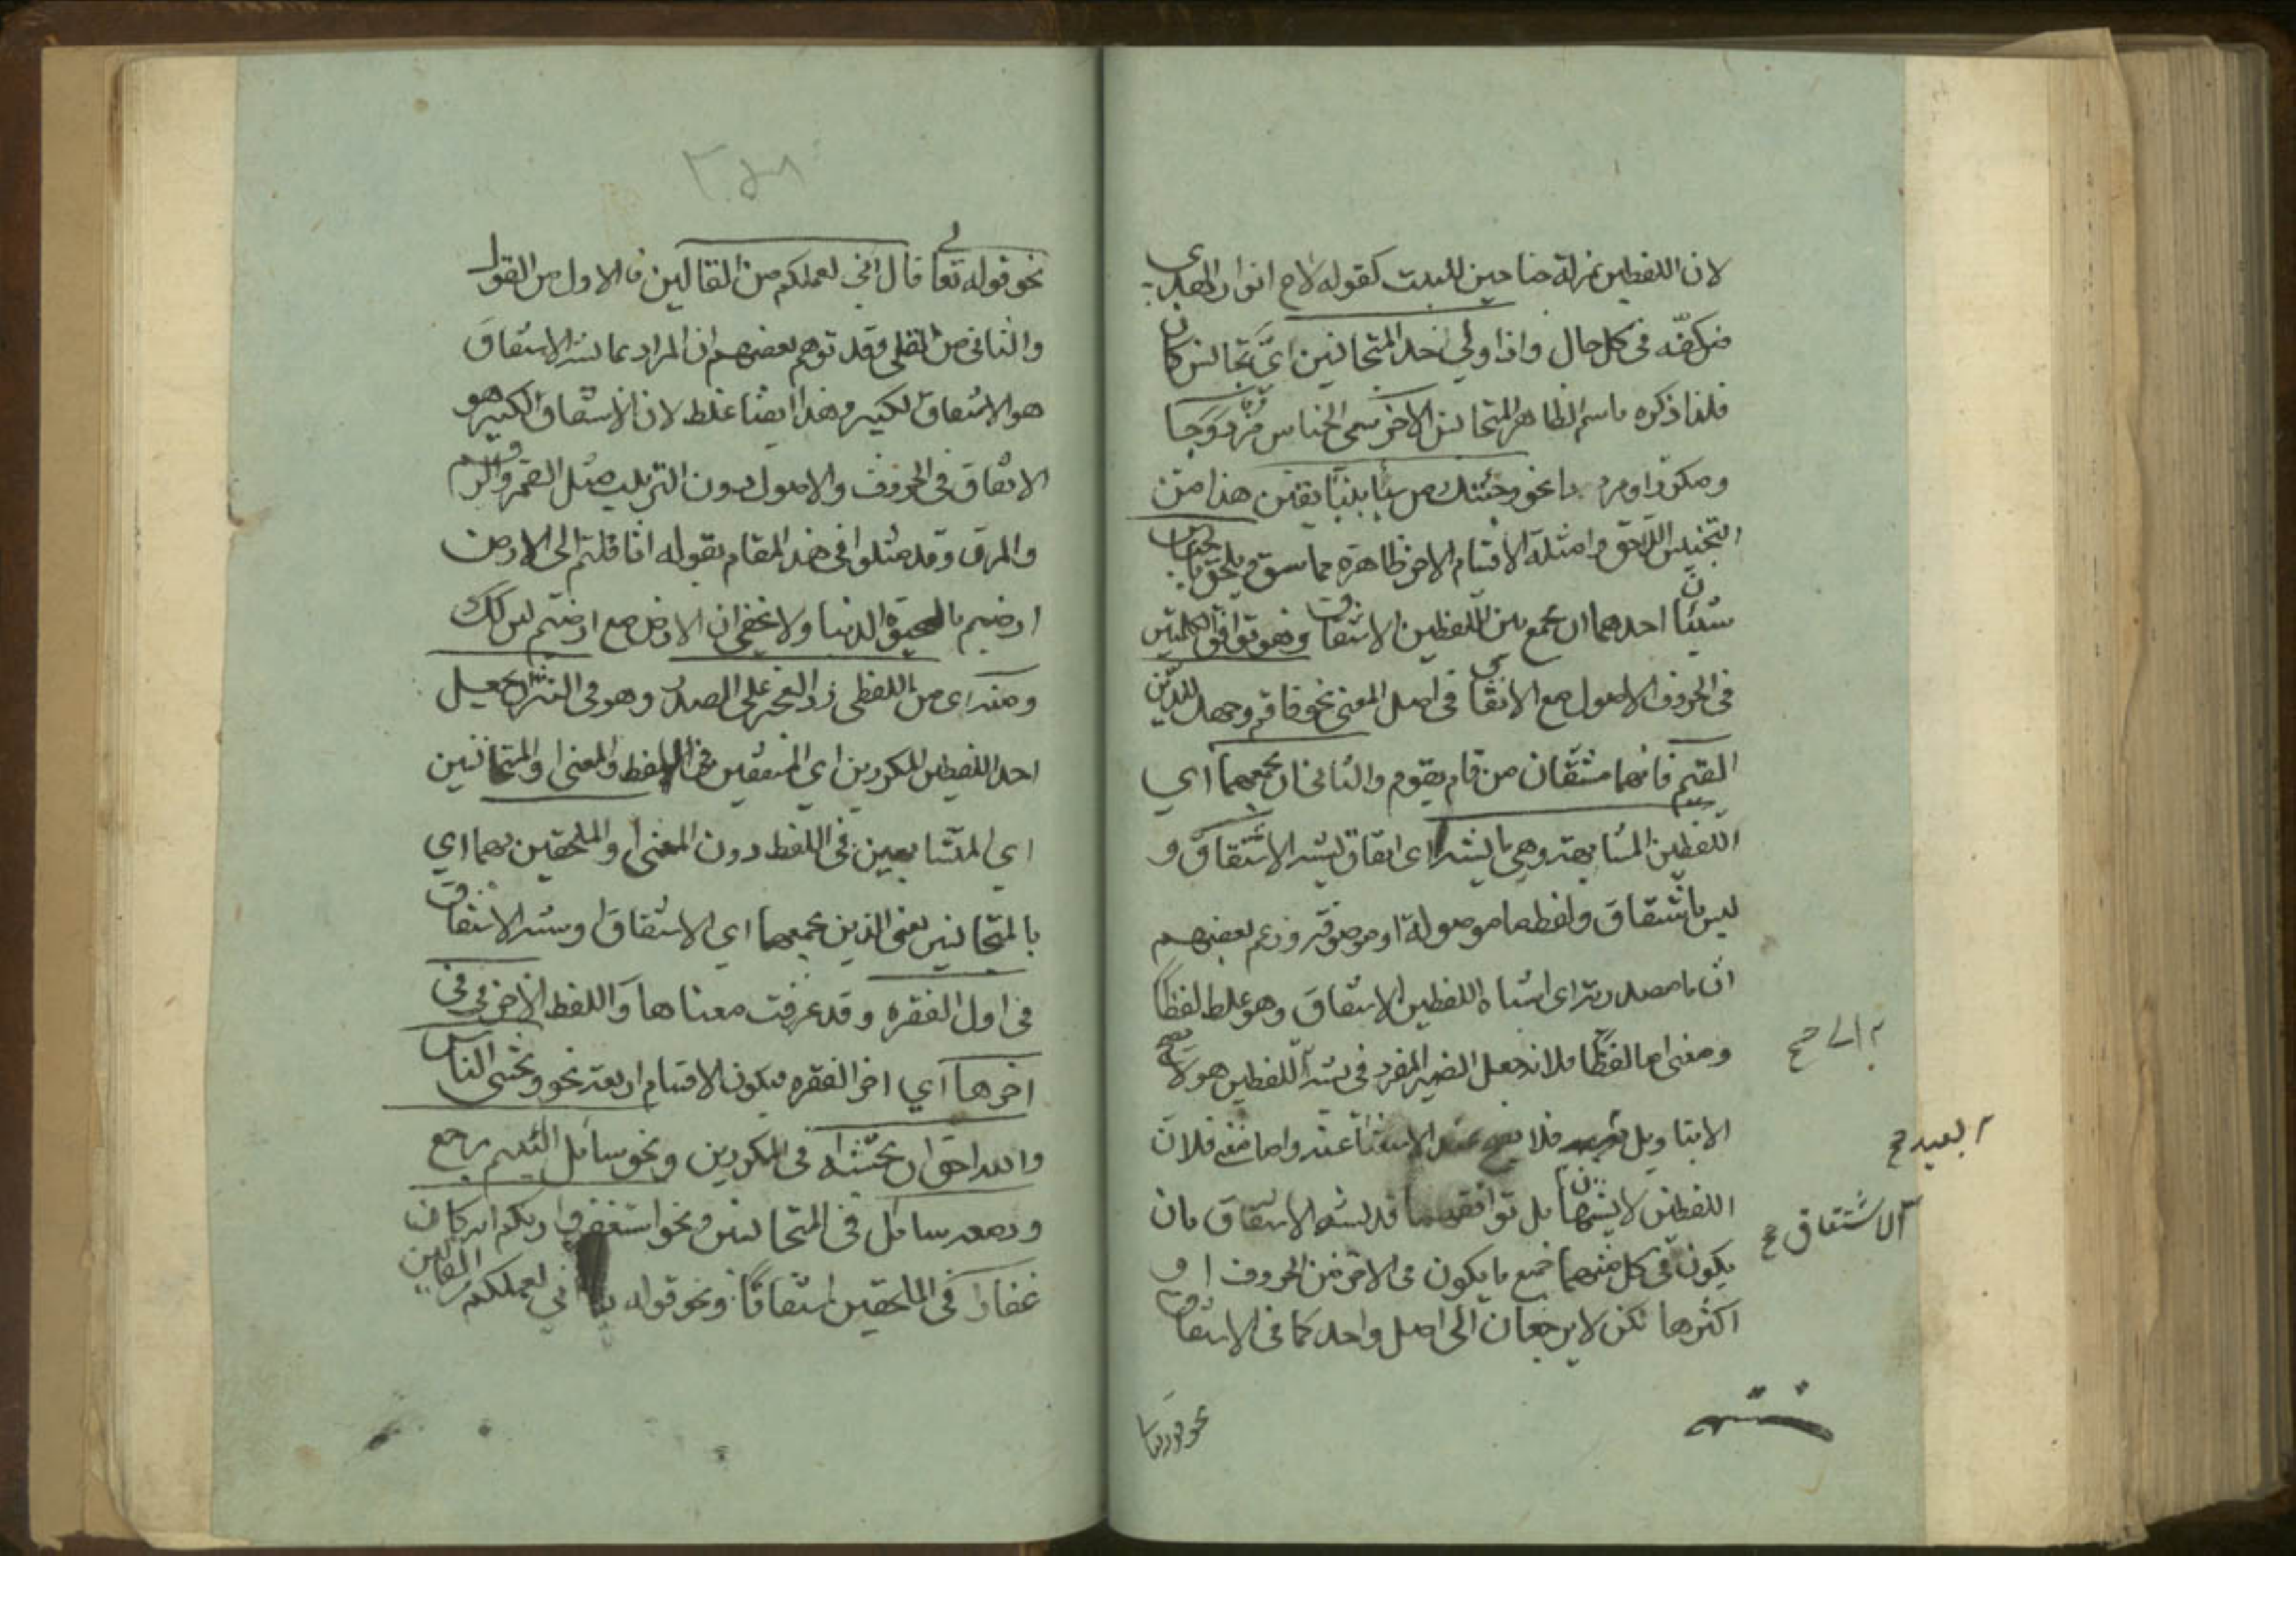 لان اللفظين بمنزلة جناحين للبيت كقوله لاح انوار الهدى
من كفّه فى كل حال واذا ولي احد المتجانسين ايّ تجانس كان
فلذا ذكره باسم الظاهر المتجانس الاخر سمى الجناس مزدوجا
ومكررا ومرددا نحو وجئتك من سبأ بنبأ يقين هذا من
التجنيس اللاحق وامثلة الاقسام الاخر ظاهرة مما سبق ويلحق بالجناس
شيئان احدهما ان يجمع بين اللفظين الاشتقاق وهو توافق الكلمتين
فى الحروف الاصول مع الاتفاق فى اصل المعنى نحو فاقم وجهك للدين
القيم فانهما مشتقان من قام يقوم والثانى ان يجمعهما اي
اللفظين المشابهة وهي ما يشبه اى اتفاق يشبه الاشتقاق و
ليس باشتقاق ولفظة ما موصولة او موصوفة وزعم بعضهم
ان ما مصدرية اى اشباه اللفظين الاشتقاق وهو غلط لفظا
ومعنى اما لفظا فلانه جعل الضمير المفرد فى يشبه اللفظين هو لا يصح
الا بتاويل فلا يصح عند الاستغنا عنه واما معنى فلان
اللفظين لا يشبهان بل توافقهما قد يشبه الاشتقاق بان
يكون فى كل منهما جميع ما يكون فى الاخر من الحروف او
اكثرها لكن لا يرجعان الى اصل واحد كما فى الاشتقاق
البعيد صح
الاشتقاق صح
نحو قوله تعالى قال انى لعملكم من القالين فالاول من القول
والثانى من القلى وقد توهم بعضهم ان المراد بما يشبه الاشتقاق
هو الاشتقاق الكبير وهذا ايضا غلط لان الاشتقاق الكبير هو
الاتفاق فى الحروف والاصول دون الترتيب مثل القمر والرقم
والمرق وقد مثلوا فى هذا المقام بقوله اثاقلتم الى الارض
ارضيتم بالحيوة الدنيا ولا يخفى ان الارض مع ارضيتم ليس كك
ومنه اى من اللفظى رد العجز على الصدر وهو فى النثر ان يجعل
احد اللفظين المكررين اي المتفقين فى اللفظ والمعنى او المتجانسين
اى المتشابهين فى اللفظ دون المعنى او الملحقين بهما اي
بالمتجانسين يعنى الذين يجمعهما اى الاشتقاق او شبه الاشتقاق
فى اول الفقره وقد عرفت معناها واللفظ الاخر فى
اخرها اي اخر الفقره فيكون الاقسام اربعة نحو وتخشى الناس
والله احق ان تخشه فى المكررين ونحو سائل اللئيم يرجع
ودمعه سائل فى المتجانسين ونحو استغفروا ربكم انه كان
غفارا فى الملحقين اشتقاقا ونحو قوله انى لعملكم من القالين